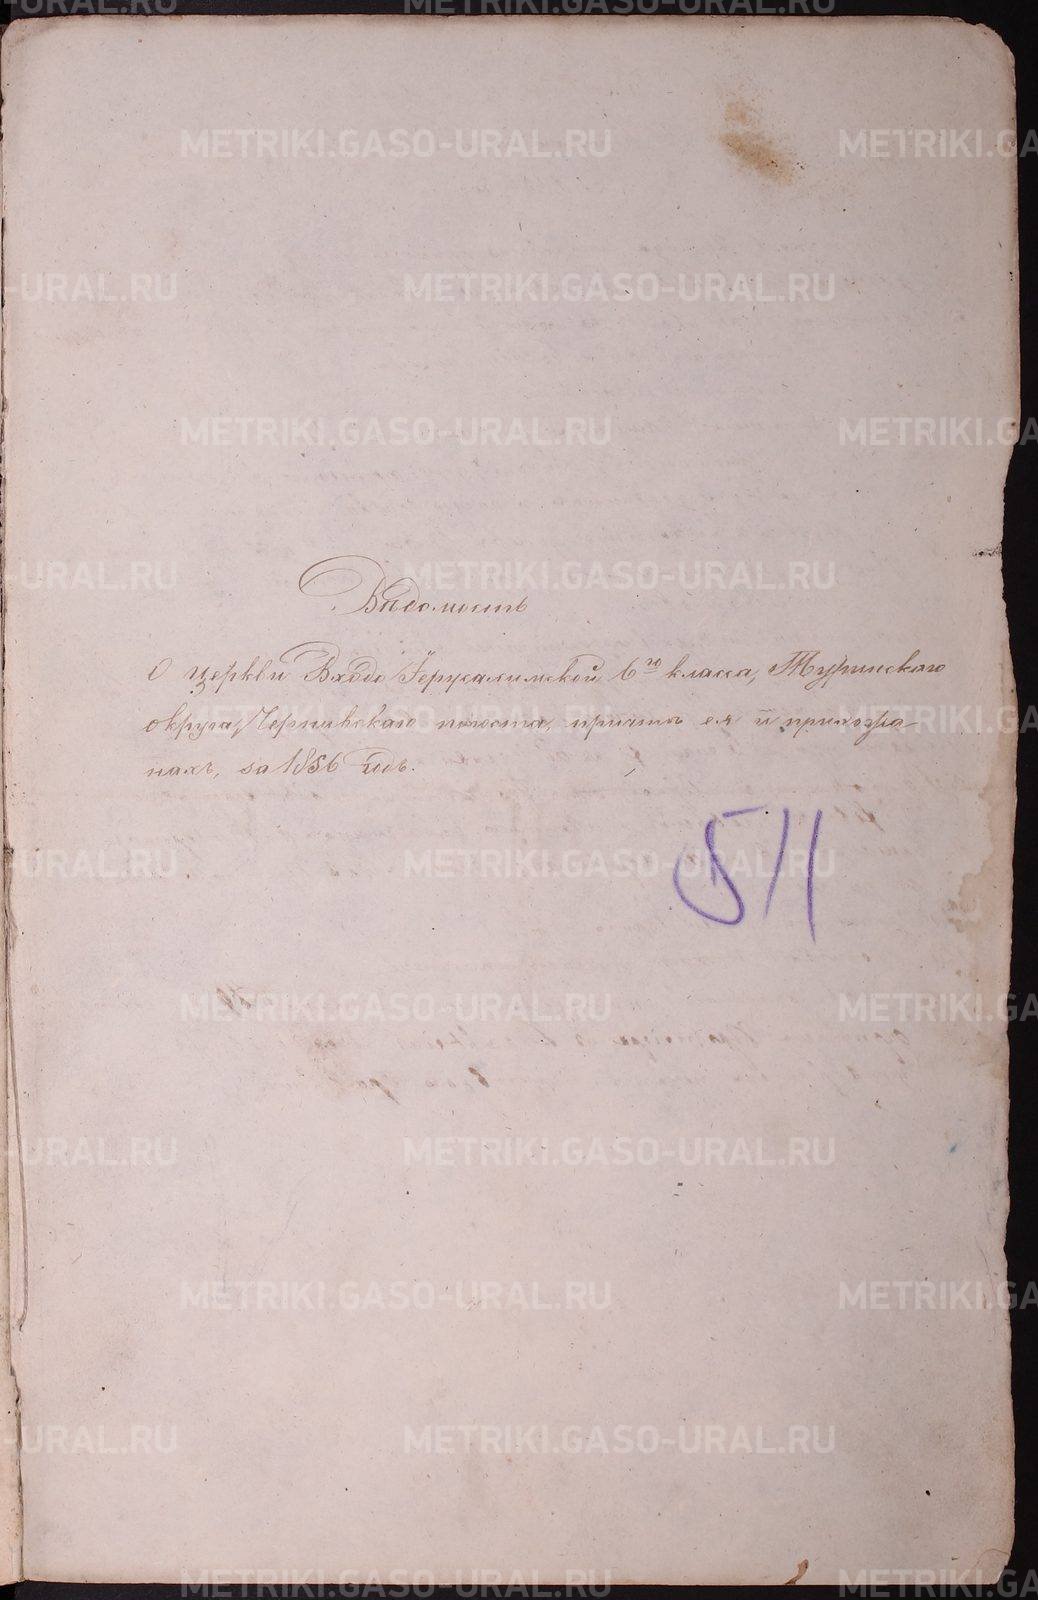 Вѣдомость
О церкви Входо Іерусалимской 6го класса, Туринскаго
округа, погоста, причтѣ ея и прихожа-
нахъ, за 1856 годъ.
511
METRIKI.GASO-URAL.RU